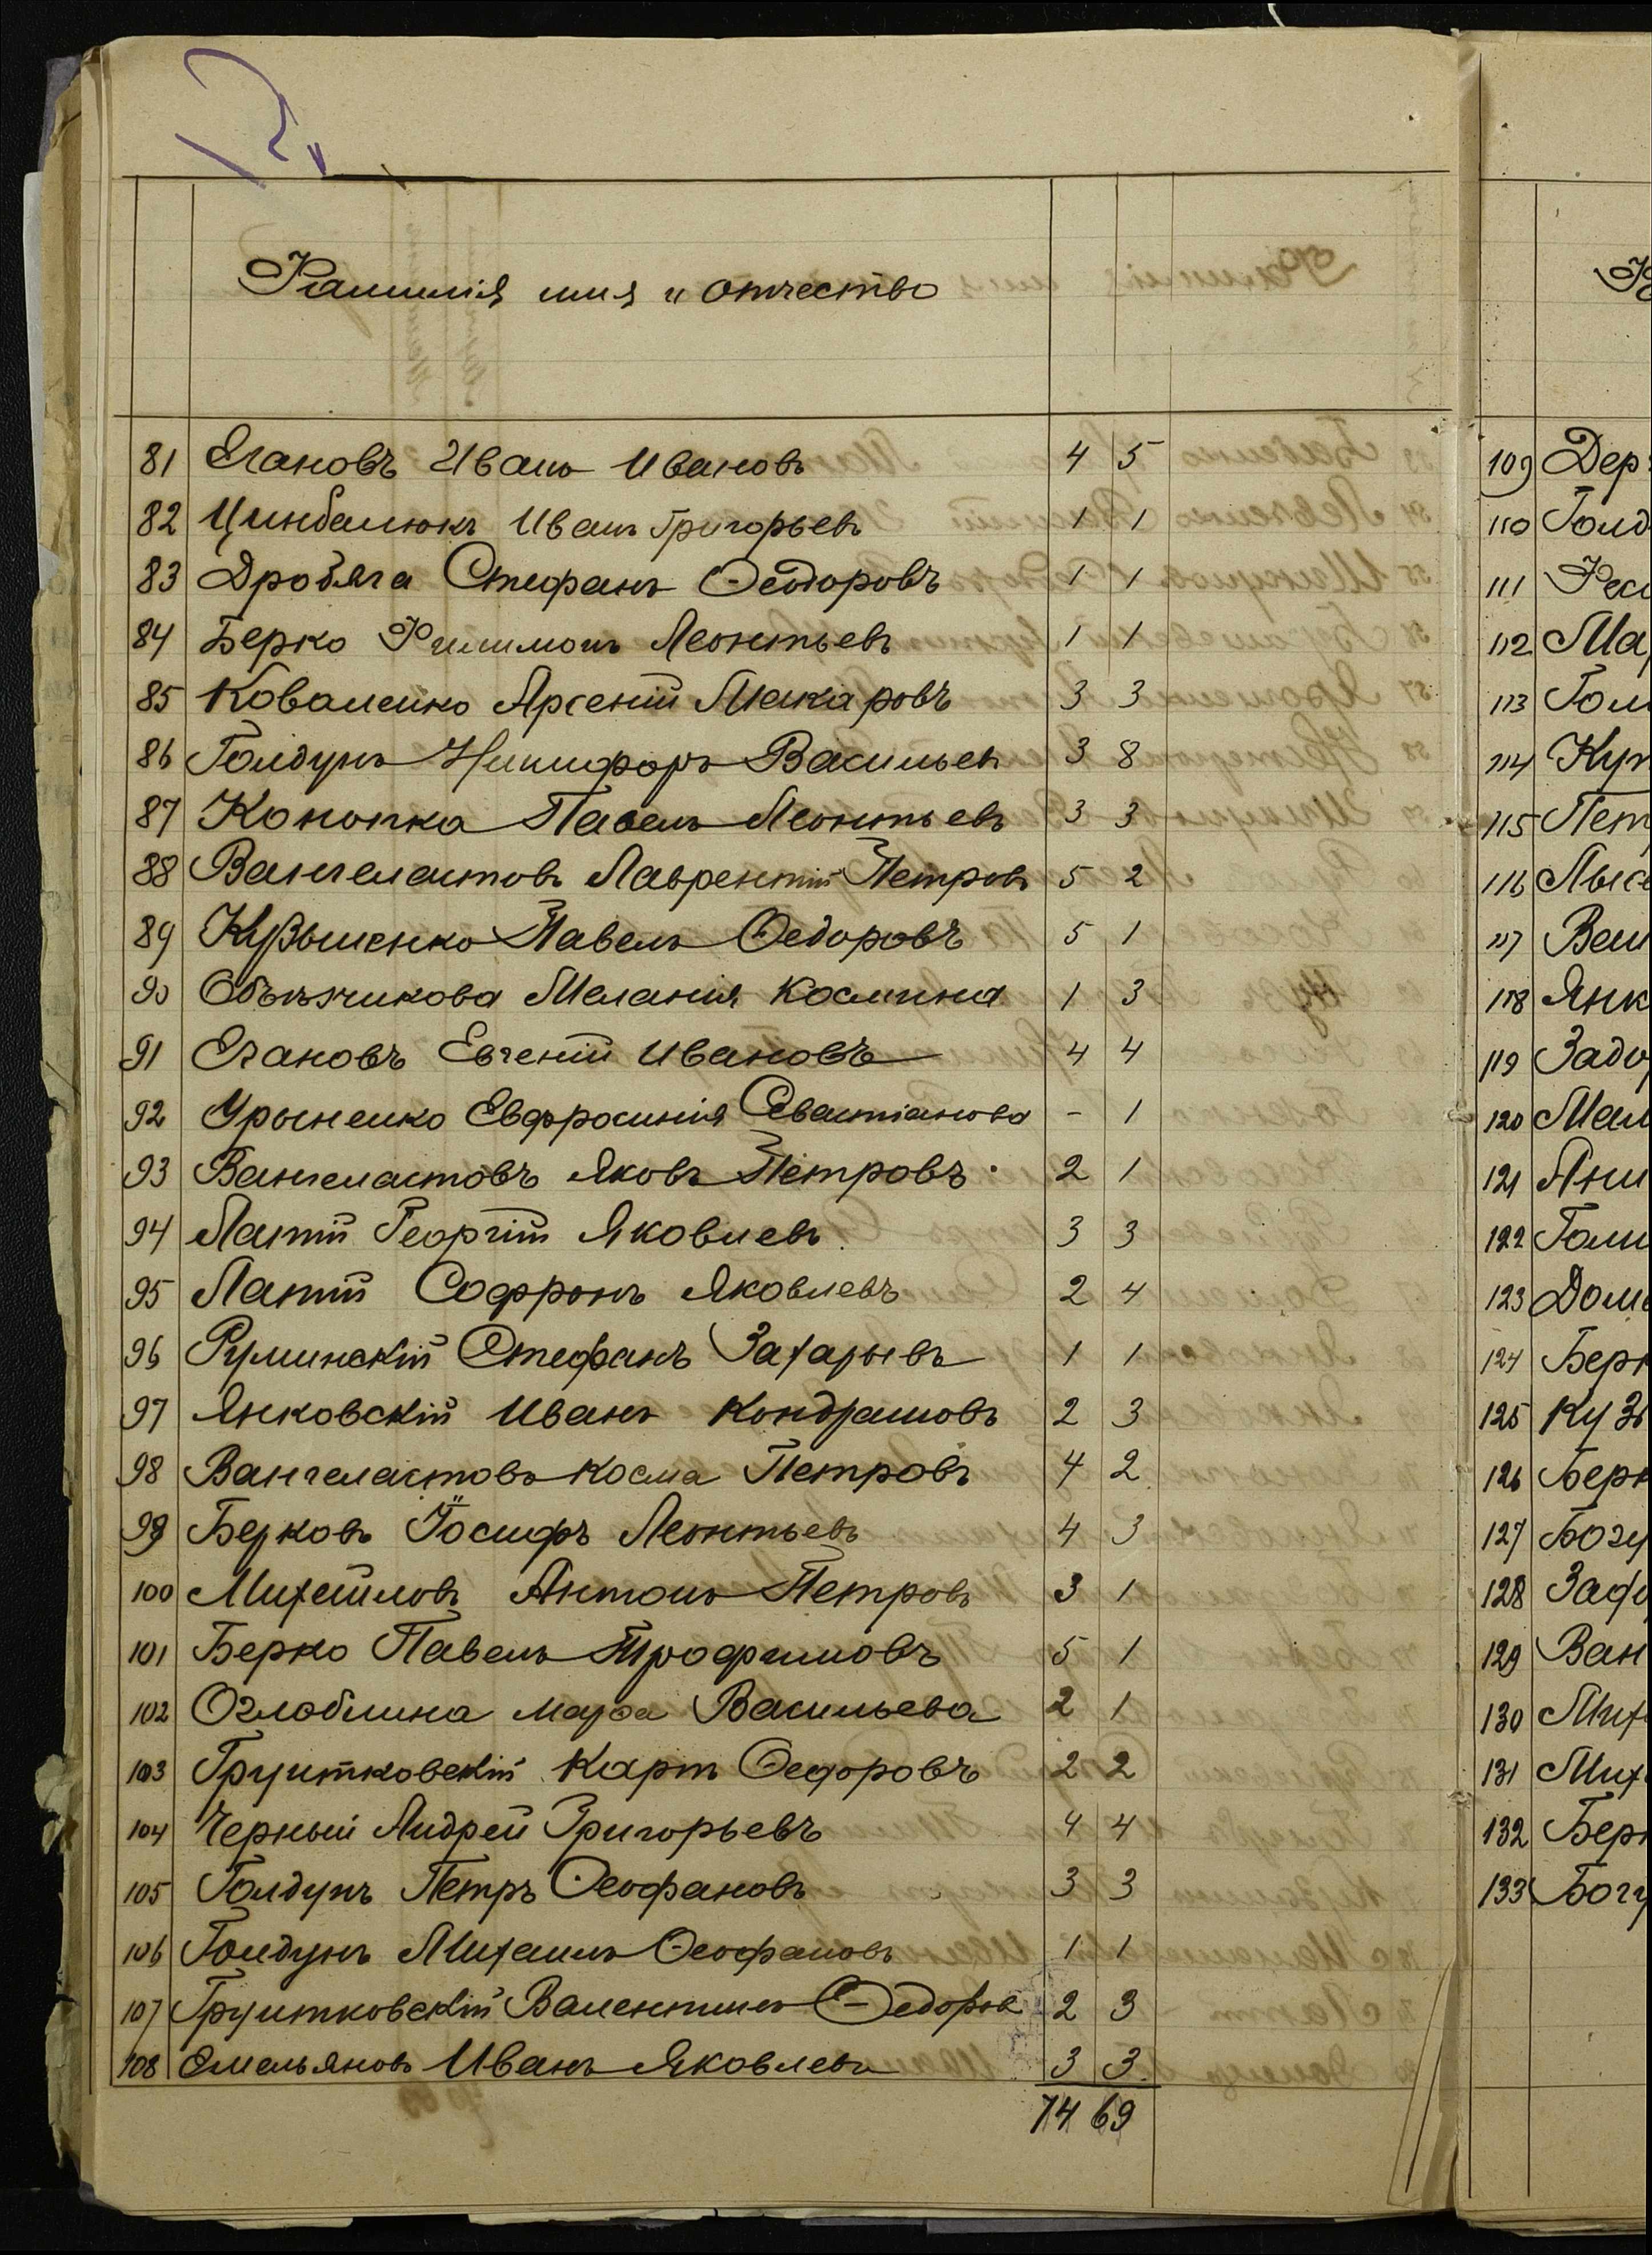 Фамилія имя и отчество
81 Егановъ Иванъ Ивановъ 4 5
82 Цинбалюкъ Иванъ Григорьевъ 1 1
83 Дробяга Стефанъ Ѳеодоровъ 1 1
84 Берко Филимонъ Леонтьевъ 1 1
85 Коваленко Арсеній Макаровъ 3 3
86 Голдунъ Никифоръ Васильев 3 8
87 Конопка Павелъ Леонтьевъ 3 3
88 Вангеластовъ Лаврентій Петровъ 5 2
89 Кузьменко Павелъ Ѳедоровъ 5 1
90 Объѣзчикова Меланія Космина 1 3
91 Егановъ Евгеній Ивановъ 4 4
92 Евфросинія Севастіанова - 1
93 Вангеластовъ Яковъ Петровъ 2 1
94 Лаптій Георгій Яковлевъ 3 3
95 Лаптій Софронъ Яковлевъ 2 4
96 Руминскій Стефанъ Захарьевъ 1 1
97 Янковскій Иванъ Кондратовъ 2 3
98 Вангеластовъ Косма Петровъ 4 2
99 Берковъ Іосифъ Леонтьевъ 4 3
100 Михайловъ Антонъ Петровъ 3 1
101 Берко Павелъ Трофимовъ 5 1
102 Оглоблина Марѳа Васильева 2 1
103 Грушковскій Карпъ Ѳедоровъ 2 2
104 Черный Андрей Григорьевъ 4 4
105 Голдунъ Петръ Ѳеофановъ 3 3
106 Голдунъ Михаилъ Ѳеофановъ 1 1
107 Грушковскій Валентинъ Ѳедоров 2 3
108 Емельяновъ Иванъ Яковлевъ 3 3
74 69
109 Дер
110 Голд
111
112 Ма
113 Гол
114
115 Пет
116 Лыс
117
118 Янк
119 Задо
120
121
122
123 Дом
124 Бер
125 Куз
126 Бер
127 Богу
128
129 Ван
130 Мих
131 Мих
132 Бер
133 Богу